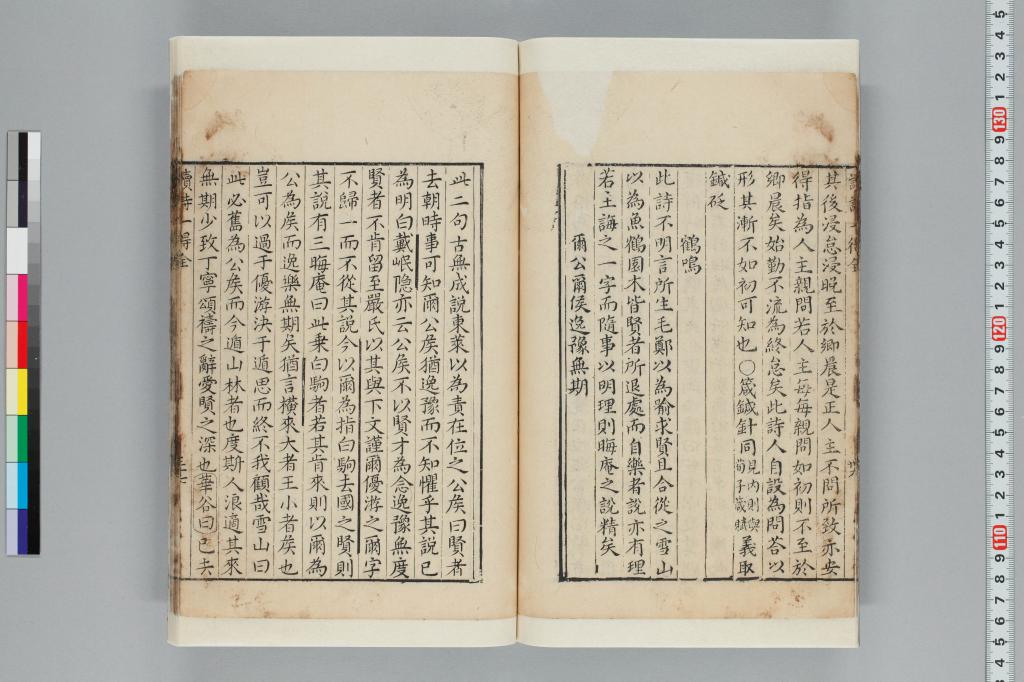 其後浸怠浸晩至於鄉晨是正人主不問所致亦安
得指為人主親問若人主每每親問如初則不至於
鄉晨矣始勤不流為終怠矣此詩人自設為問荅以
形其漸不如初可知也〇箴鍼針同見内則與荀子箴賦義取
鍼砭
鶴鳴
此詩不明言所主毛鄭以為喻求賢且合從之雪山
以為魚鶴園木皆賢者所退處而自樂者說亦有理
若主誨之一字而隨事以明理則晦庵之說精矣
爾公爾侯逸豫無期
此二句古無成說東萊以為責在位之公侯曰賢者
去朝時事可知爾公侯猶逸豫而不知懼乎其說已
為明白戴岷隐亦云公侯不以賢才為念逸豫無度
賢者不肯留至嚴氏以其與下文謹爾優游之爾字
不歸一而不從其說今以爾為指白駒去國之賢則
其說有三晦庵曰此乗白駒者若其肯來則以爾為
公為侯而逸樂無期矣猶言橫來大者王小者侯也
豈可以過于優游決于遁思而終不我顧哉雪山曰
此必舊為公侯而今遁山林者也度斯人浪適其來
無期少致丁寧頌禱之辭愛賢之深也華谷曰已去
讀詩一得全